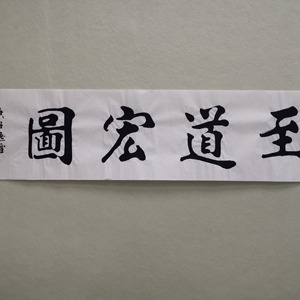 至道宏圖